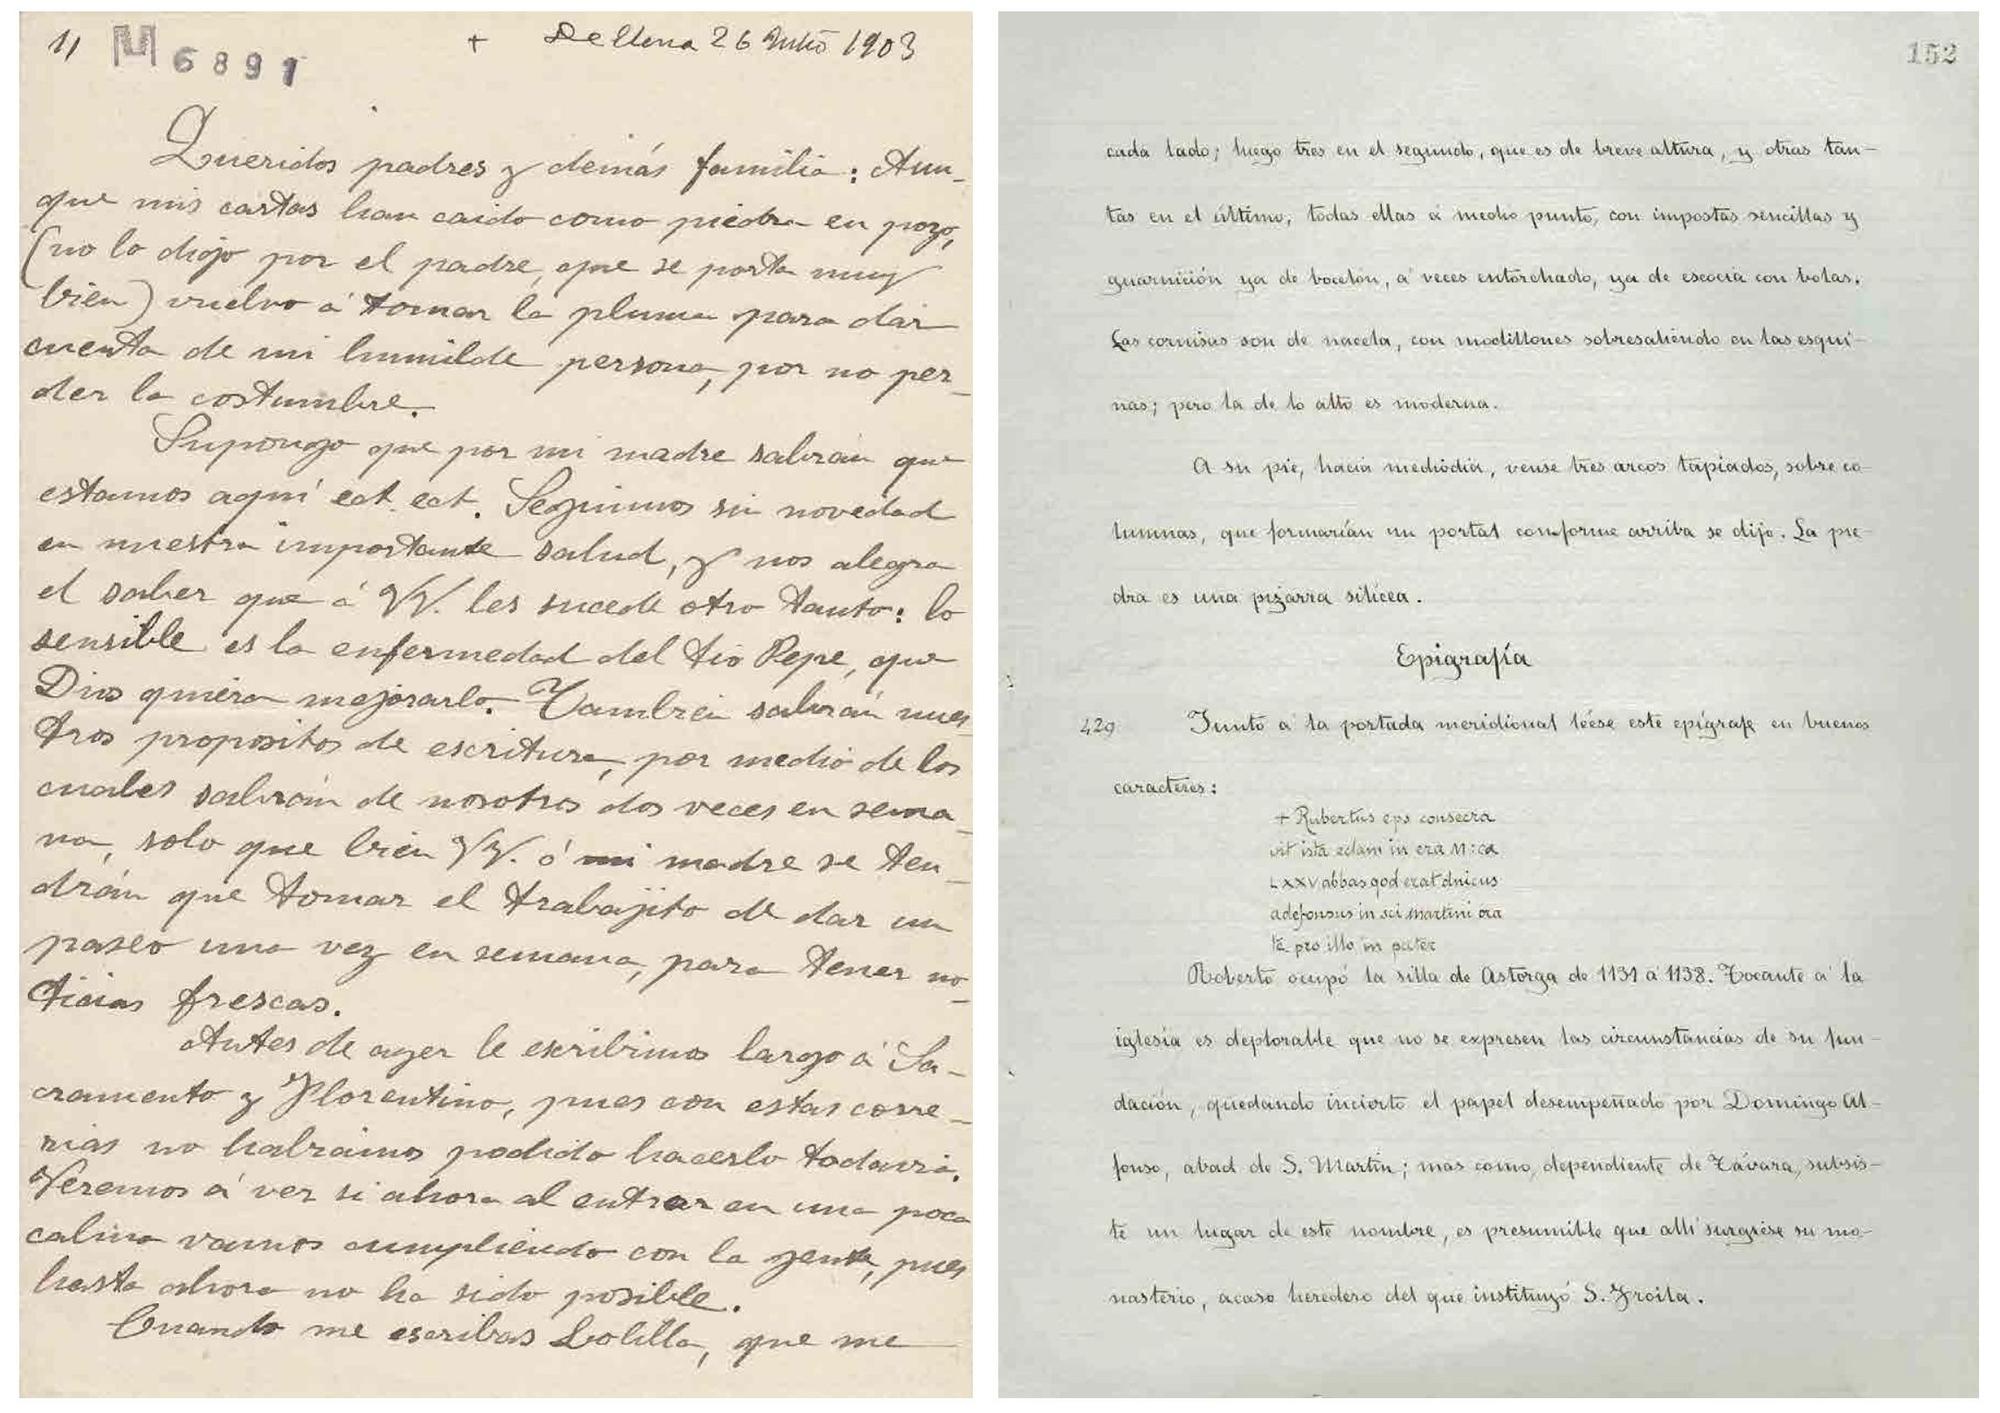 1) M 6891
+ Dellena 26 Julio 1903
Queridos padres y demás familia: Aun-
que mis cartas han caido como piedra en pozo,
(no lo digo por el padre, que se porta muy
bien) vuelvo á tomar la pluma para dar
cuenta de mi humilde persona, por no per-
der la costumbre.
Supongo que por mi madre sabrán que
estamos aquí ect. ect. Seguimos sin novedad
en nuestra importante salud, y nos alegra
el saber que á VV. les sucede otro tanto: lo
sensible es la enfermedad del tio Pepe, que
Dios quiera mejorarlo. Tambien sabrán nues-
tros propositos de escritura, por medio de los
cuales sabrán de nosotros dos veces en sema-
na, solo que bien VV. ó mi madre se ten-
drán que tomar el trabajito de dar un
paseo una vez en semana, para tener no-
ticias frescas.
Antes de ayer le escribimos largo á Sa-
cramento y Florentino, pues con estas corre-
rias no habiamos podido hacerlo todavia.
Veremos á ver si ahora al entrar en una poca
calma vamos cumpliendo con la gente, pues
hasta ahora no ha sido posible.
Cuando me escribas Lolilla, que me
152
cada lado; luego tres en el segundo, que es de breve altura, y otras tan-
tas en el último, todas ellas á medio punto, con impostas sencillas y
guarnición ya de bocelón, á veces entorchado, ya de escocia con bolas.
Las cornisas son de nacela, con modillones sobresaliendo en las esqui-
nas; pero la de lo alto es moderna.
A su pie, hacia mediodía, vense tres arcos tapiados, sobre co-
lumnas, que formarían un portal conforme arriba se dijo. La pie-
dra es una pizarra silícea.
Epigrafía
429 Junto á la portada meridional léese este epígrafe en buenos
caracteres:
+ Rubertus eps consecra
vit ista eclam in era M:ca
LXXV abbas qod erat dnicus
adefonsus in sci martini ora
te pro illo in pater
Roberto ocupó la silla de Astorga de 1131 á 1138. Tocante á la
iglesia es deplorable que no se expresen las circunstancias de su fun-
dación, quedando incierto el papel desempeñado por Domingo Al-
fonso, abad de S. Martín; mas como, dependiente de Távara, subsis-
te un lugar de este nombre, es presumible que allí surgiese su mo-
nasterio, acaso heredero del que instituyó S. Froila.